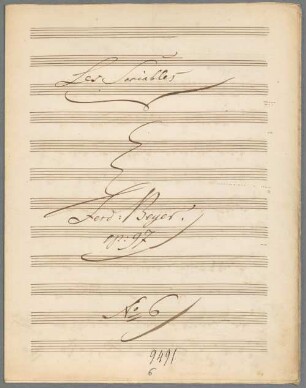 Les Sociables
Ferd: Beyer.
op: 97
No 6
9491
6